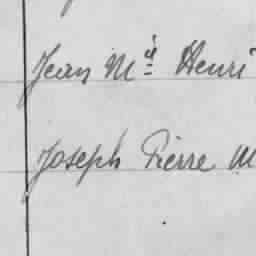 Jean M^ie Henri
Joseph Pierre M